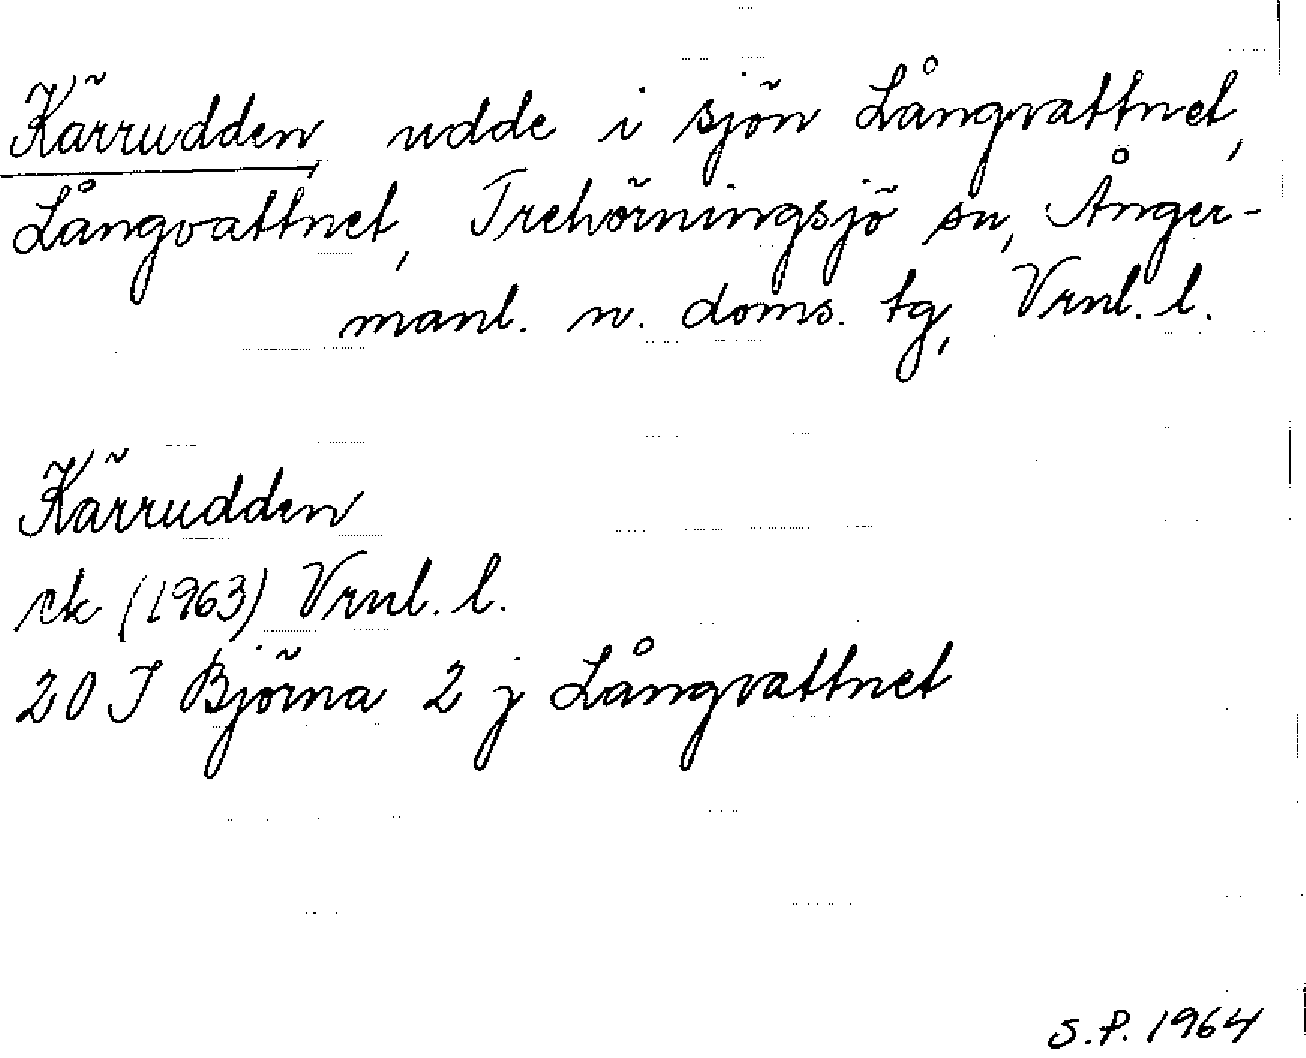 Kärrudden, udde i sjön Långvattnet,
Långvattnet, Trehörningsjö sn, Ånger-
manl. n. doms. tg, Vrnl. l.
Kärrudden
ek (1963) Vrnl. l.
20 I Björna 2 j Långvattnet
S.P. 1964